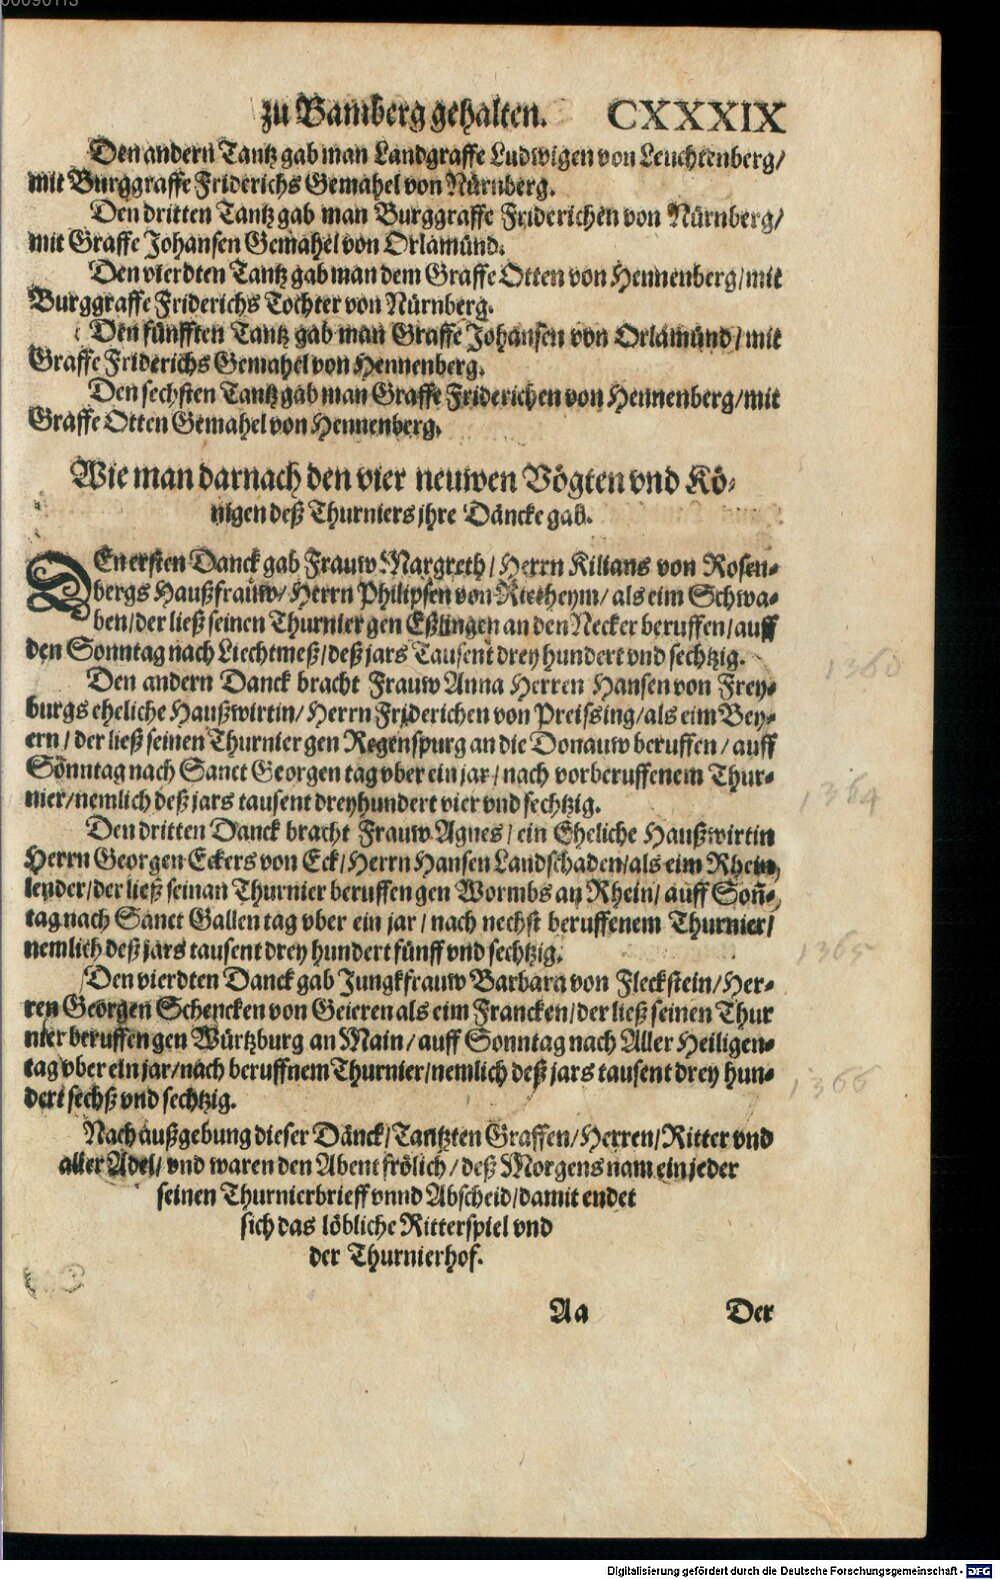 00090113
zu Bamberg gehalten. CXXXIX
Den andern Tantz gab man Landgraffe Ludwigen von Leuchtenberg/
mit Burggraffe Friderichs Gemahel von Nürnberg.
Den dritten Tantz gab man Burggraffe Friderichen von Nürnberg/
mit Graffe Johansen Gemahel von Orlamünd.
Den vierdten Tantz gab man dem Graffe Otten von Hennenberg/mit
Burggraffe Friderichs Tochter von Nürnberg.
Den fünfften Tantz gab man Graffe Johansen von Orlamünd/mit
Graffe Friderichs Gemahel von Hennenberg.
Den sechsten Tantz gab man Graffe Friderichen von Hennenberg/mit
Graffe Otten Gemahel von Hennenberg.
Wie man darnach den vier neuwen Vögten vnd Kö-
nigen deß Thurniers jhre Däncke gab.
DEn ersten Danck gab Frauw Margreth/Herrn Kilians von Rosen-
bergs Haußfrauw/Herrn Philipsen von Rietheym/als eim Schwa-
ben/der ließ seinen Thurnier gen Eßlingen an den Necker beruffen/auff
den Sonntag nach Liechtmeß/deß jars Tausent drey hundert vnd sechtzig.
1360
Den andern Danck bracht Frauw Anna Herren Hansen von Frey-
burgs eheliche Haußwirtin/Herrn Friderichen von Preissing/als eim Bey-
ern/der ließ seinen Thurnier gen Regenspurg an die Donauw beruffen/auff
Sonntag nach Sanct Georgen tag vber ein jar/nach vorberuffenem Thur-
nier/nemlich deß jars tausent dreyhundert vier vnd sechtzig.
1364
Den dritten Danck bracht Frauw Agnes/ein Eheliche Haußwirtin
Herrn Georgen Eckers von Eck/Herrn Hansen Landschaden/als eim Rhein-
lender/der ließ seinan Thurnier beruffen gen Wormbs an Rhein/auff Soñ-
tag nach Sanct Gallen tag vber ein jar/nach nechst beruffenem Thurnier/
nemlich deß jars tausent drey hundert fünff vnd sechtzig.
1365
Den vierdten Danck gab Jungkfrauw Barbara von Fleckstein/Her-
ren Georgen Schencken von Geieren als eim Francken/der ließ seinen Thur
nier beruffen gen Würtzburg an Main/auff Sonntag nach Aller Heiligen-
tag vber ein jar/nach beruffnem Thurnier/nemlich deß jars tausent drey hun-
dert sechß vnd sechtzig.
1366
Nach außgebung dieser Dänck/Tantzten Graffen/Herren/Ritter vnd
aller Adel/vnd waren den Abent frölich/deß Morgens nam ein jeder
seinen Thurnierbrieff vnnd Abscheid/damit endet
sich das löbliche Ritterspiel vnd
der Thurnierhof.
Aa Der
Digitalisierung gefördert durch die Deutsche Forschungsgemeinschaft - DFG